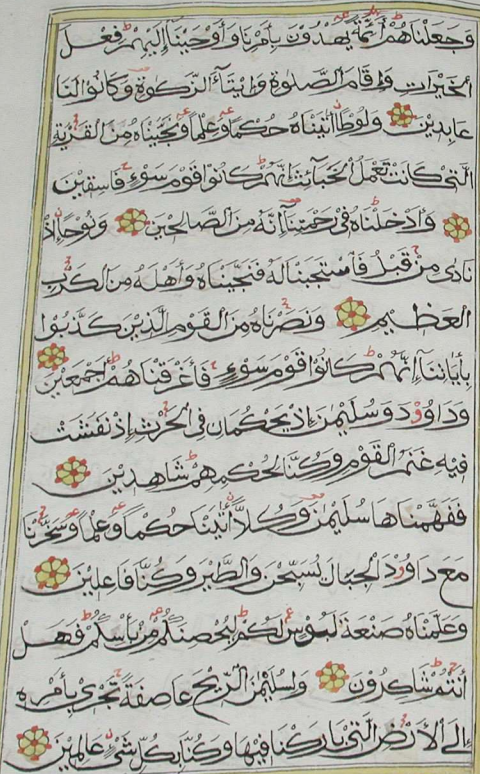 وَجَعَلْنَاهُمْ أَئِمَّةً يَهْدُونَ بِأَمْرِنَا وَأَوْحَيْنَا إِلَيْهِمْ فِعْلَ
الْخَيْرَاتِ وَإِقَامَ الصَّلٰوةِ وَإِيتَاءَ الزَّكٰوةِ وَكَانُوا لَنَا
عَابِدِينَ وَلُوطًا آتَيْنَاهُ حُكْمًا وَعِلْمًا وَنَجَّيْنَاهُ مِنَ الْقَرْيَةِ
الَّتِي كَانَتْ تَعْمَلُ الْخَبَائِثَ إِنَّهُمْ كَانُوا قَوْمَ سَوْءٍ فَاسِقِينَ
وَأَدْخَلْنَاهُ فِي رَحْمَتِنَا إِنَّهُ مِنَ الصَّالِحِينَ وَنُوحًا إِذْ
نَادَى مِنْ قَبْلُ فَاسْتَجَبْنَا لَهُ فَنَجَّيْنَاهُ وَأَهْلَهُ مِنَ الْكَرْبِ
الْعَظِيمِ وَنَصَرْنَاهُ مِنَ الْقَوْمِ الَّذِينَ كَذَّبُوا
بِآيَاتِنَا إِنَّهُمْ كَانُوا قَوْمَ سَوْءٍ فَأَغْرَقْنَاهُمْ أَجْمَعِينَ
وَدَاوُودَ وَسُلَيْمٰنَ إِذْ يَحْكُمَانِ فِي الْحَرْثِ إِذْ نَفَشَتْ
فِيهِ غَنَمُ الْقَوْمِ وَكُنَّا لِحُكْمِهِمْ شَاهِدِينَ
فَفَهَّمْنَاهَا سُلَيْمٰنَ وَكُلًّا آتَيْنَا حُكْمًا وَعِلْمًا وَسَخَّرْنَا
مَعَ دَاوُودَ الْجِبَالَ يُسَبِّحْنَ وَالطَّيْرَ وَكُنَّا فَاعِلِينَ
وَعَلَّمْنَاهُ صَنْعَةَ لَبُوسٍ لَكُمْ لِيُحْصِنَكُمْ مِنْ بَأْسِكُمْ فَهَلْ
أَنْتُمْ شَاكِرُونَ وَلِسُلَيْمٰنَ الرِّيحَ عَاصِفَةً تَجْرِي بِأَمْرِهِ
إِلَى الْأَرْضِ الَّتِي بَارَكْنَا فِيهَا وَكُنَّا بِكُلِّ شَيْءٍ عَالِمِينَ